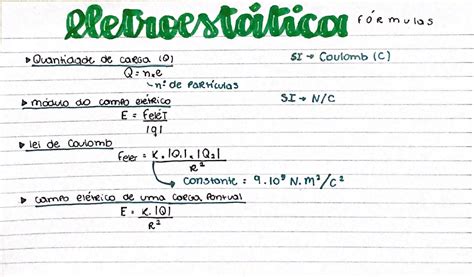 eletroestática FÓRMULAS
▸ Quantidade de carga (Q) SI → Coulomb (C)
Q = n.e
n° de partículas
▸ módulo do campo elétrico SI → N/C
E = |Felét|
|q|
▸ lei de Coulomb
Feler = K.|Q1|.|Q2|
R²
constante = 9.10⁹ N.m²/C²
▸ campo elétrico de uma carga pontual
E = K.|Q|
R²